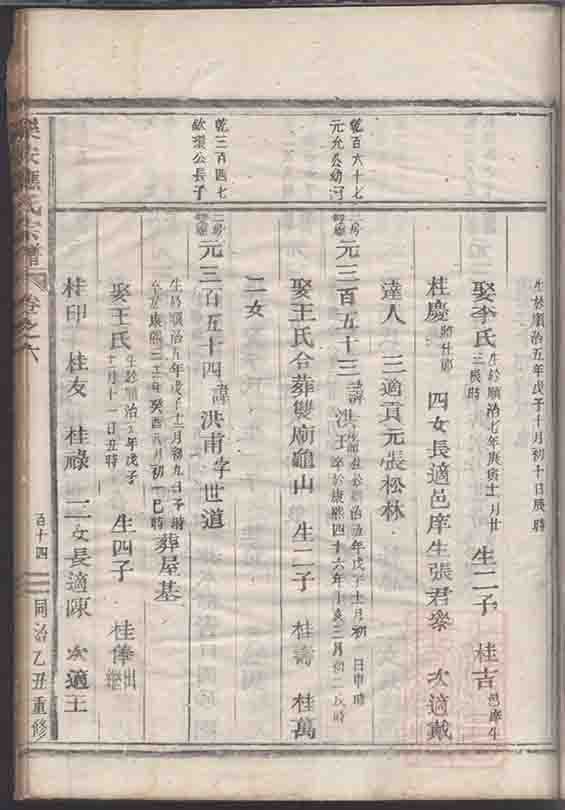 生於順治五年戊子十月初十日辰時
娶李氏 生於順治七年庚寅十一月廿三辰時 生二子 桂吉 邑庠生
桂慶 四女長適邑庠生張君 次適戴
達人 三適貢元張松林
乾百六十七 元允公幼子
元三百五十三 諱洪玉
娶王氏合葬雙廟龜山 生二子 桂壽 桂萬
二女
乾三百四七 公長子
元三百五十四 諱洪甫字世道
生於順治五年戊子十二月初九日子時
康熙三十二年癸酉八月初一巳時 葬屋基
娶王氏 生於順治五年戊子十一月十一日丑時 生四子 桂俸 出繼
桂印 桂友 桂祿 二女長適陳 次適王
樂安 氏宗譜 卷之六
百十四
同治乙丑重修